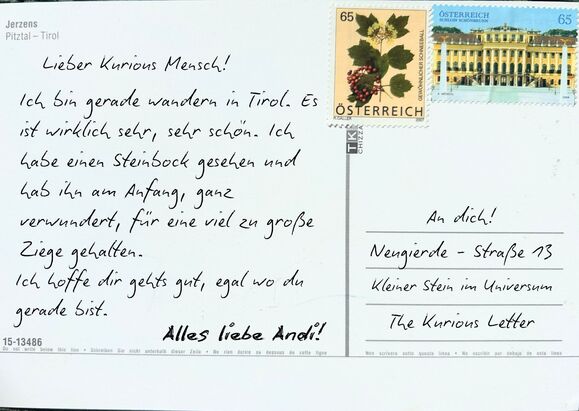 Jerzens
Pitztal – Tirol
Lieber Kurious Mensch!
Ich bin gerade wandern in Tirol. Es
ist wirklich sehr, sehr schön. Ich
habe einen Steinbock gesehen und
hab ihn am Anfang, ganz
verwundert, für eine viel zu große
Ziege gehalten.
Ich hoffe dir gehts gut, egal wo du
gerade bist.
Alles liebe Andi!
15-13486
Do not write below this line • Schreiben Sie nicht unterhalb dieser Zeile • Ne rien écrire au dessous de cette ligne
65
GEWÖHNLICHER SCHNEEBALL
ÖSTERREICH
2007
ÖSTERREICH
SCHLOSS SCHÖNBRUNN
65
An dich!
Neugierde - Straße 13
Kleiner Stein im Universum
The Kurious Letter
Non scrivere sotto questa linea • No escribir por debajo de esta linea